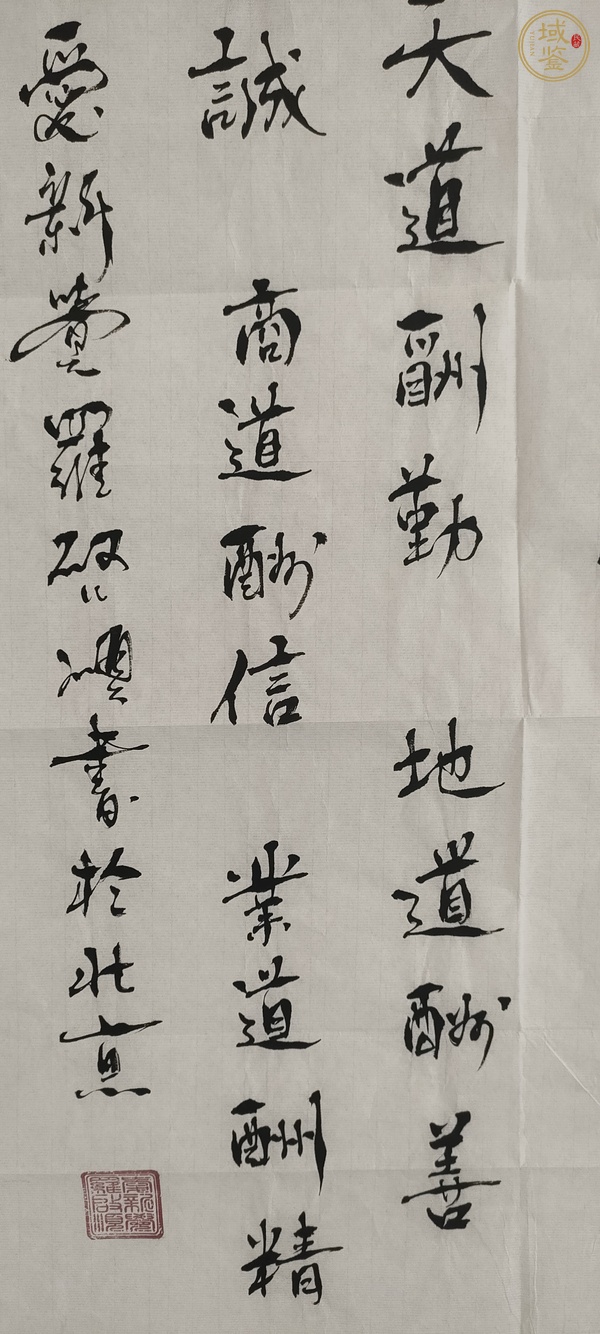 天道酬勤 地道酬善
誠 商道酬信 業道酬精
愛新覺羅啟濒書於北京
域鉴